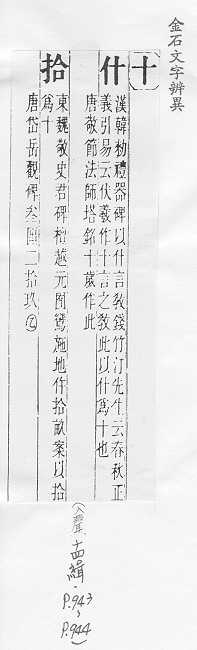 金石文字辨異
十
什
漢韓勑禮器碑以什言教錢竹汀先生云春秋正
義引易云伏羲作十言之教此以什爲十也
唐敬節法師塔銘十歲作此
拾
東魏敬史君碑栢越元圃鷲施地作拾畝案以拾
爲十
唐岱岳觀碑叁 二拾玖
(入聲.十四緝.
P.943
~
P.944)